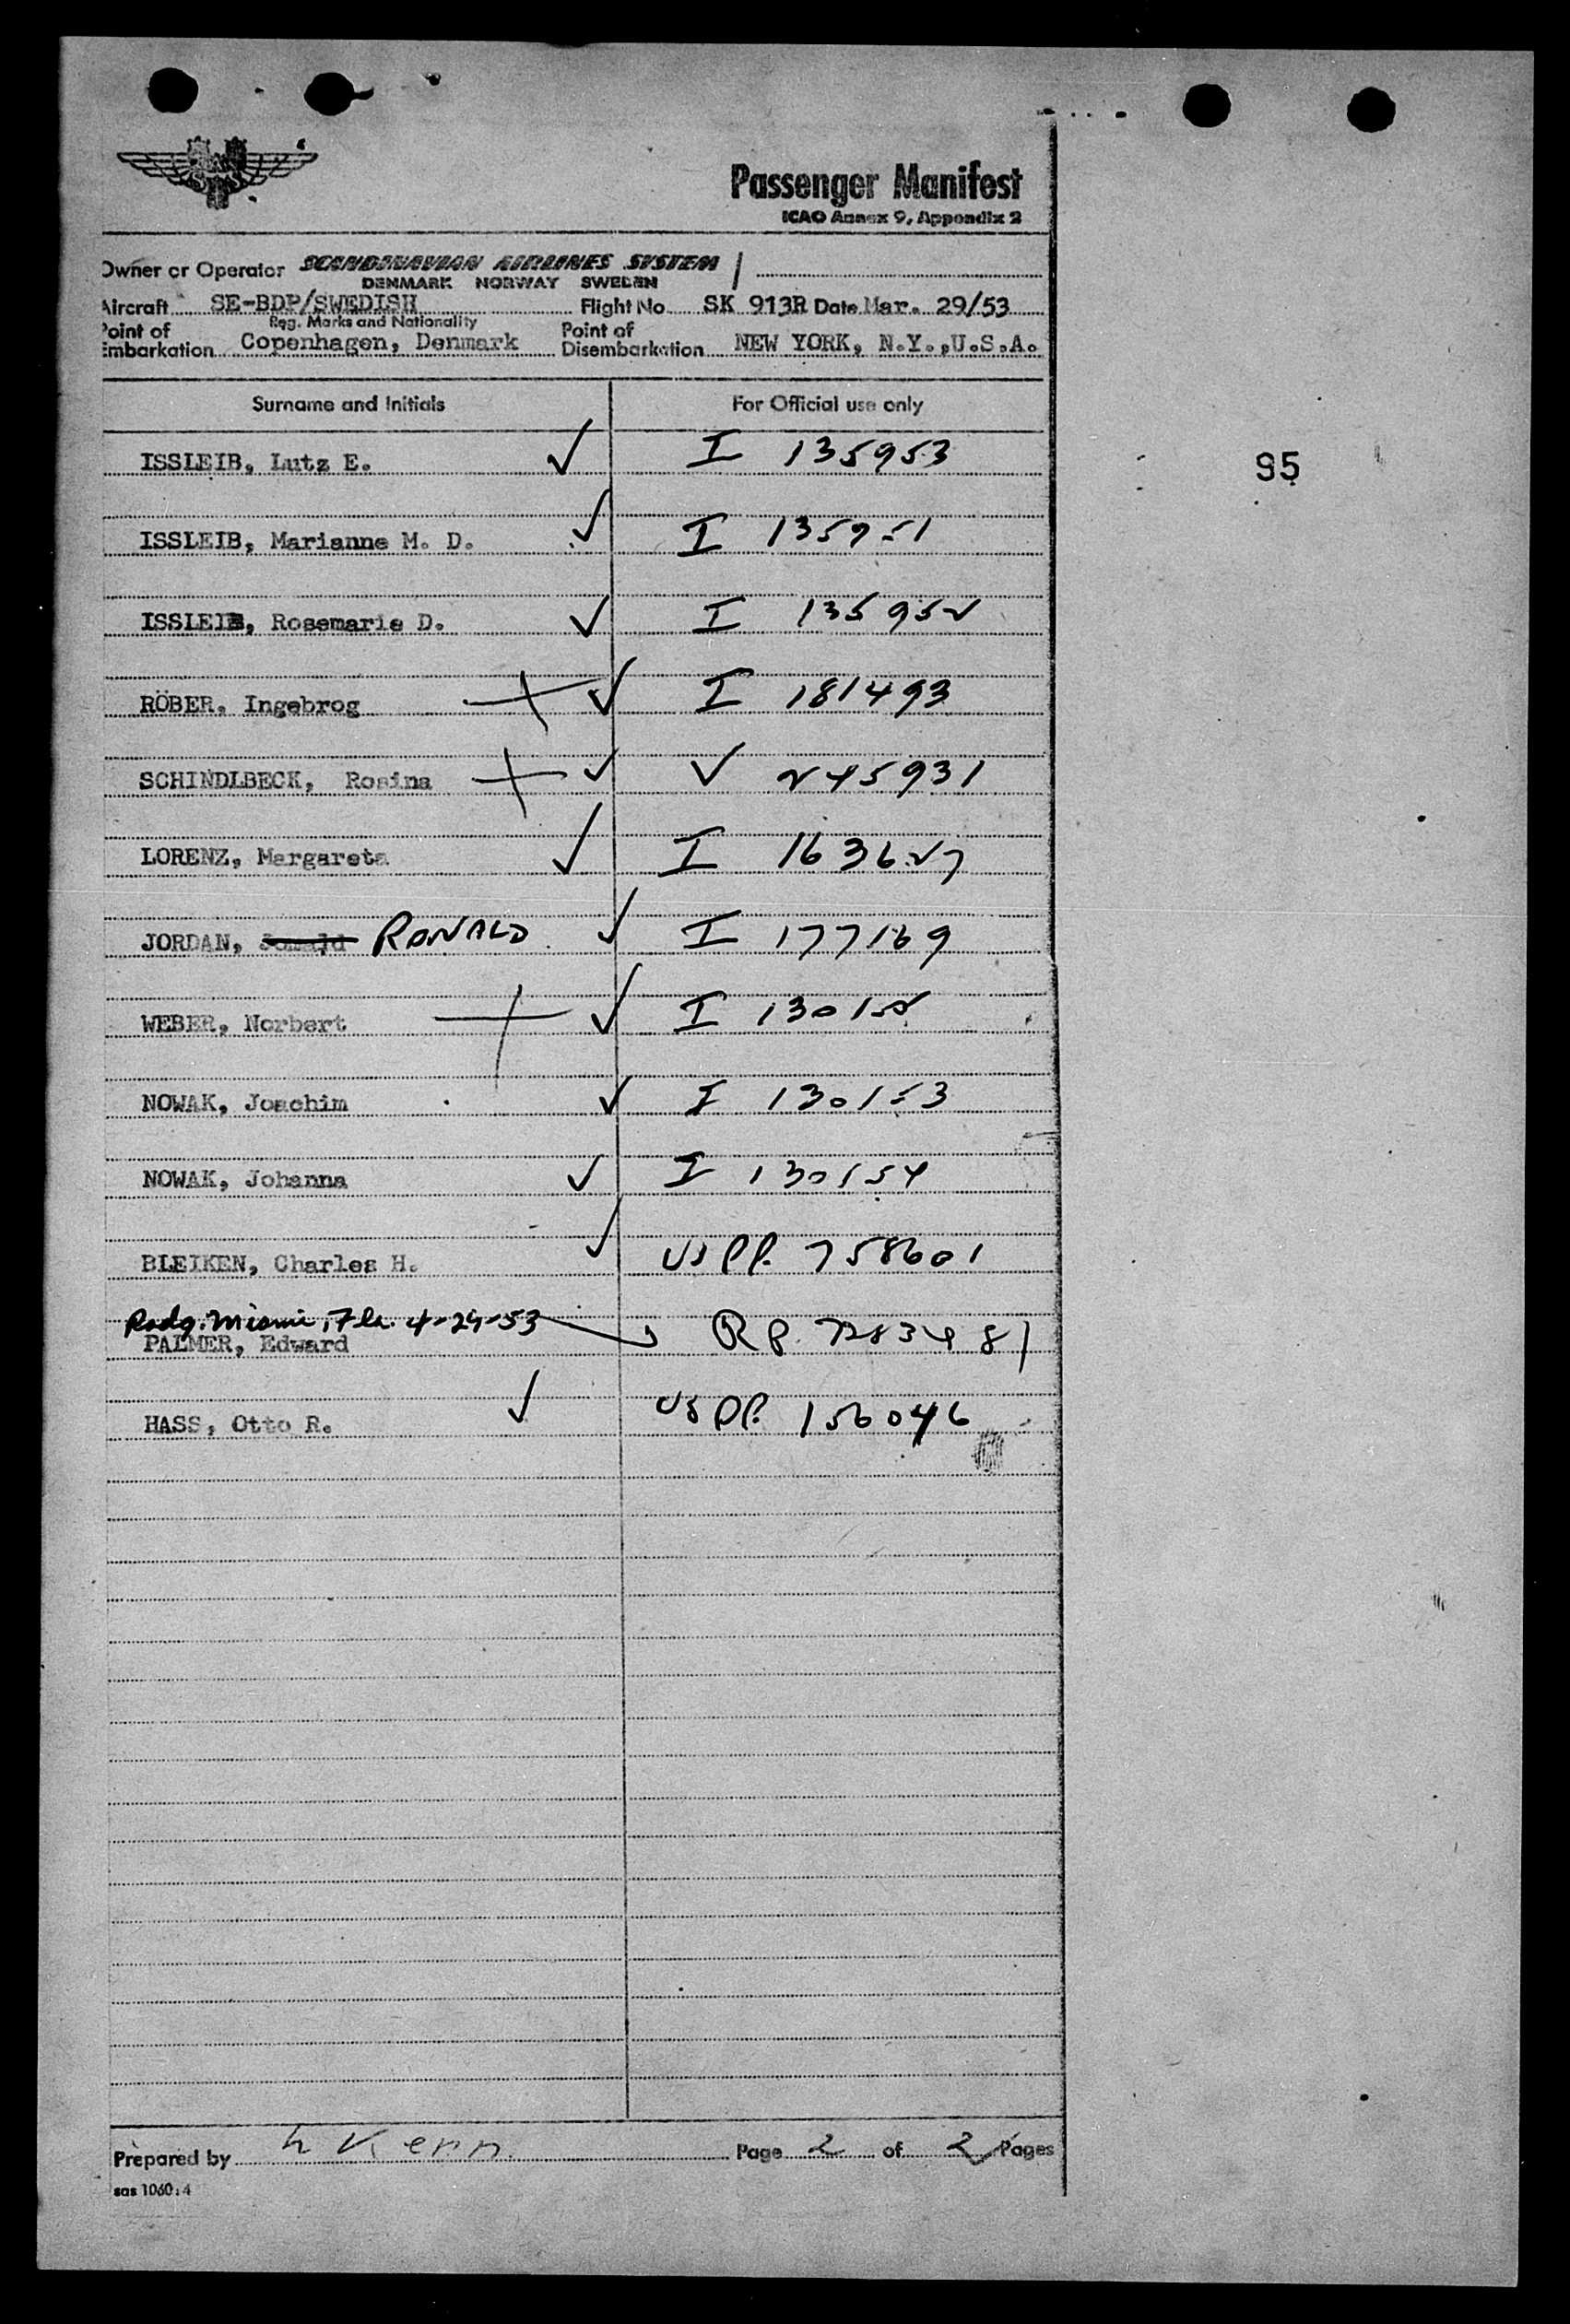 Passenger Manifest
ICAO Annex 9, Appendix 2
Owner or Operator SCANDINAVIAN AIRLINES SYSTEM /
DENMARK NORWAY SWEDEN
Aircraft SE-BDP/SWEDISH Flight No. SK 913R Date Mar. 29/53
Reg. Marks and Nationality
Point of Embarkation Copenhagen, Denmark Point of Disembarkation NEW YORK, N.Y.,U.S.A.
Surname and Initials For Official use only
ISSLEIB, Lutz E. ✓ I 135953
95
ISSLEIB, Marianne M. D. ✓ I 135951
ISSLEIB, Rosemarie D. ✓ I 135952
RÖBER, Ingebrog ✓ I 181493
SCHINDLBECK, Rosina ✓ V 245931
LORENZ, Margareta ✓ I 163627
JORDAN, RONALD ✓ I 177169
WEBER, Norbert ✓ I 130152
NOWAK, Joachim ✓ I 130153
NOWAK, Johanna ✓ I 130154
BLEIKEN, Charles H. ✓ US PP. 758601
Rodg. Miami, Fla. 4-29-53
PALMER, Edward RP.
HASS, Otto R. ✓ US PP. 156046
Prepared by h Kern Page 2 of 2 Pages
sas 1060:4